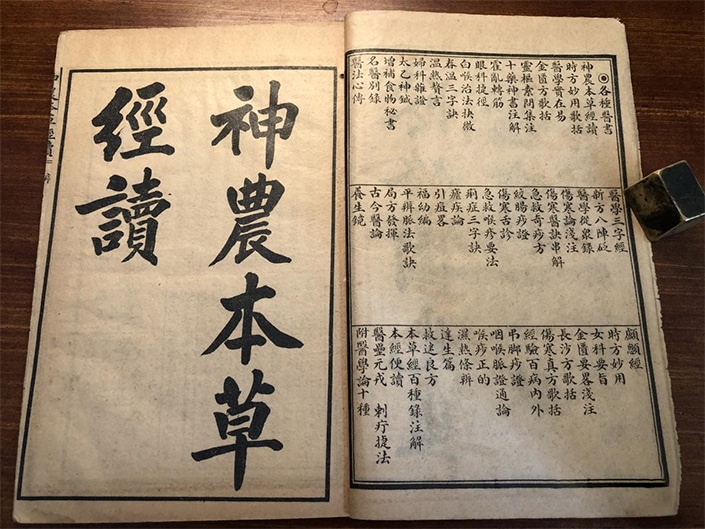 ◉各種醫書
神農本草經讀
時方妙用歌括
醫學實在易
金匱方歌括
靈樞素問集注
十藥神書注解
霍亂轉筋
眼科捷徑
白喉治法抉微
春溫三字訣
溫熱贅言
婦科雜證
太乙神鍼
增補食物秘書
名醫別錄
醫法心傳
醫學三字經
新方八陣砭
醫學從衆錄
傷寒論淺注
傷寒醫訣串解
急救奇痧方
絞腸痧證
傷寒舌診
急救喉疹要法
痢症三字訣
瘧疾論
引痘畧
福幼編
平辨脈法歌訣
局方發揮
古今醫論
養生鏡
顱顖經
時方妙用
女科要旨
金匱要畧淺注
長沙方歌括
傷寒真方歌括
經驗百病內外
弔脚痧證
咽喉脈證通論
喉痧正的
濕熱條辨
達生篇
救迷良方
本草經百種錄注解
本經便讀
醫壘元戎 刺疔捷法
附醫學論十種
神農本草
經讀